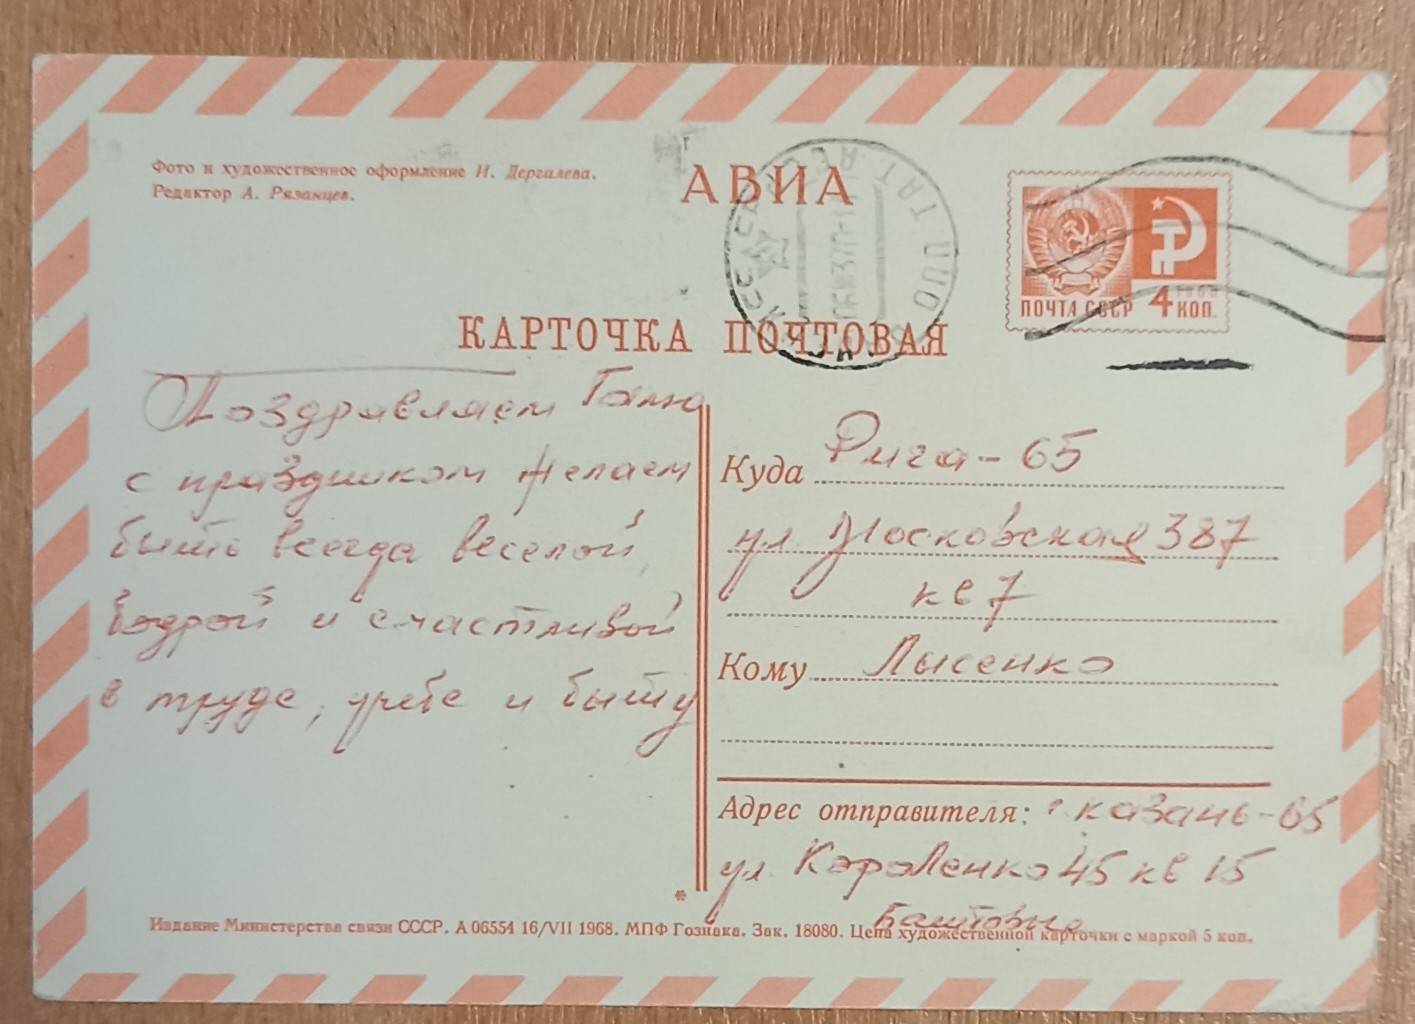 Фото и художественное оформление И. Дергилева.
Редактор А. Рязанцев.
АВИА
ПОЧТА СССР 4 КОП.
КАРТОЧКА ПОЧТОВАЯ
Поздравляем Галю
с праздником желаем
быть всегда веселой,
бодрой и счастливой
в труде, учебе и быту
Куда Рига-65
ул. Московская 387
кв 7
Кому Лысенко
Адрес отправителя: г. Казань-65
ул Короленко 45 кв 15
Издание Министерства связи СССР. А 06554 16/VII 1968. МПФ Гознака. Зак. 18080. Цена художественной карточки с маркой 5 коп.